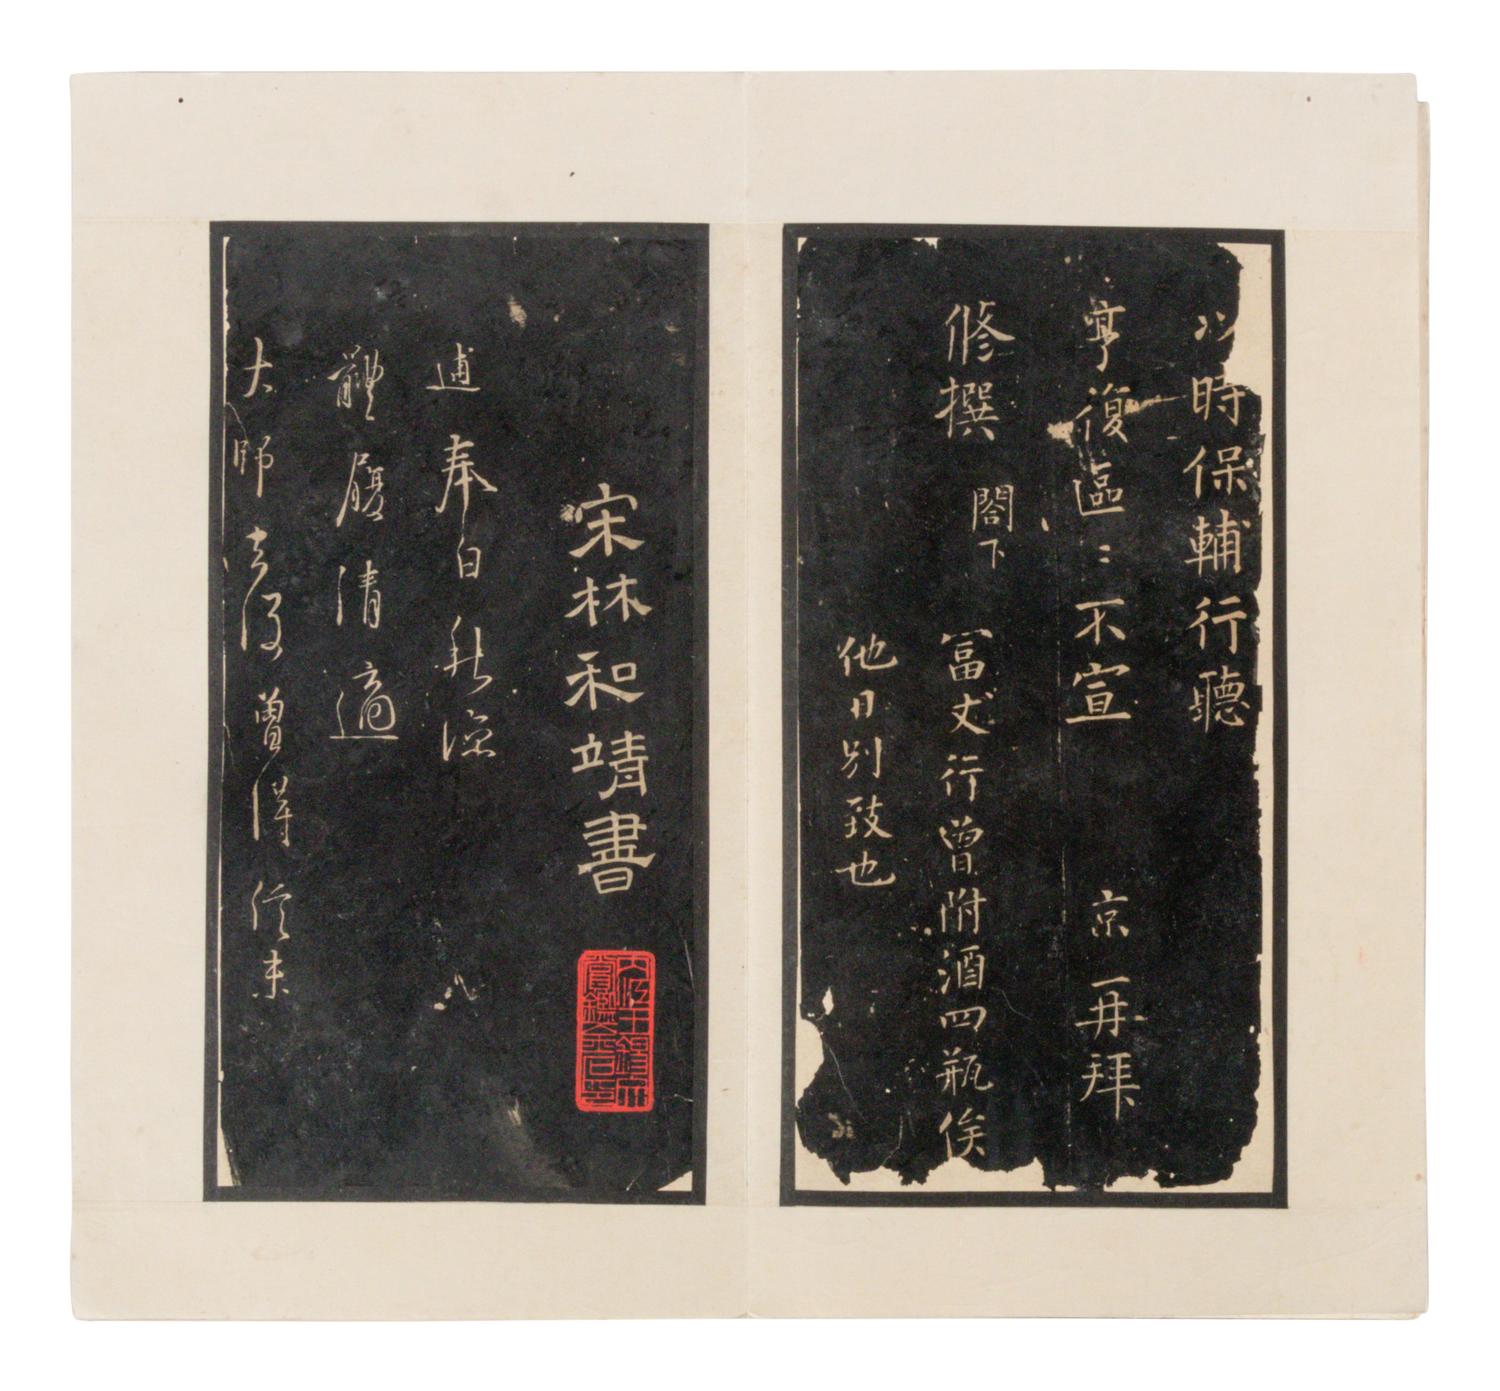 以時保輔行聽
亨復區〻不宣　京　再拜
修撰　閤下　富丈行曾附酒四瓶俟
他日別致也
宋林和靖書
逋奉白秋深
體履清適
大師去後曾得信未